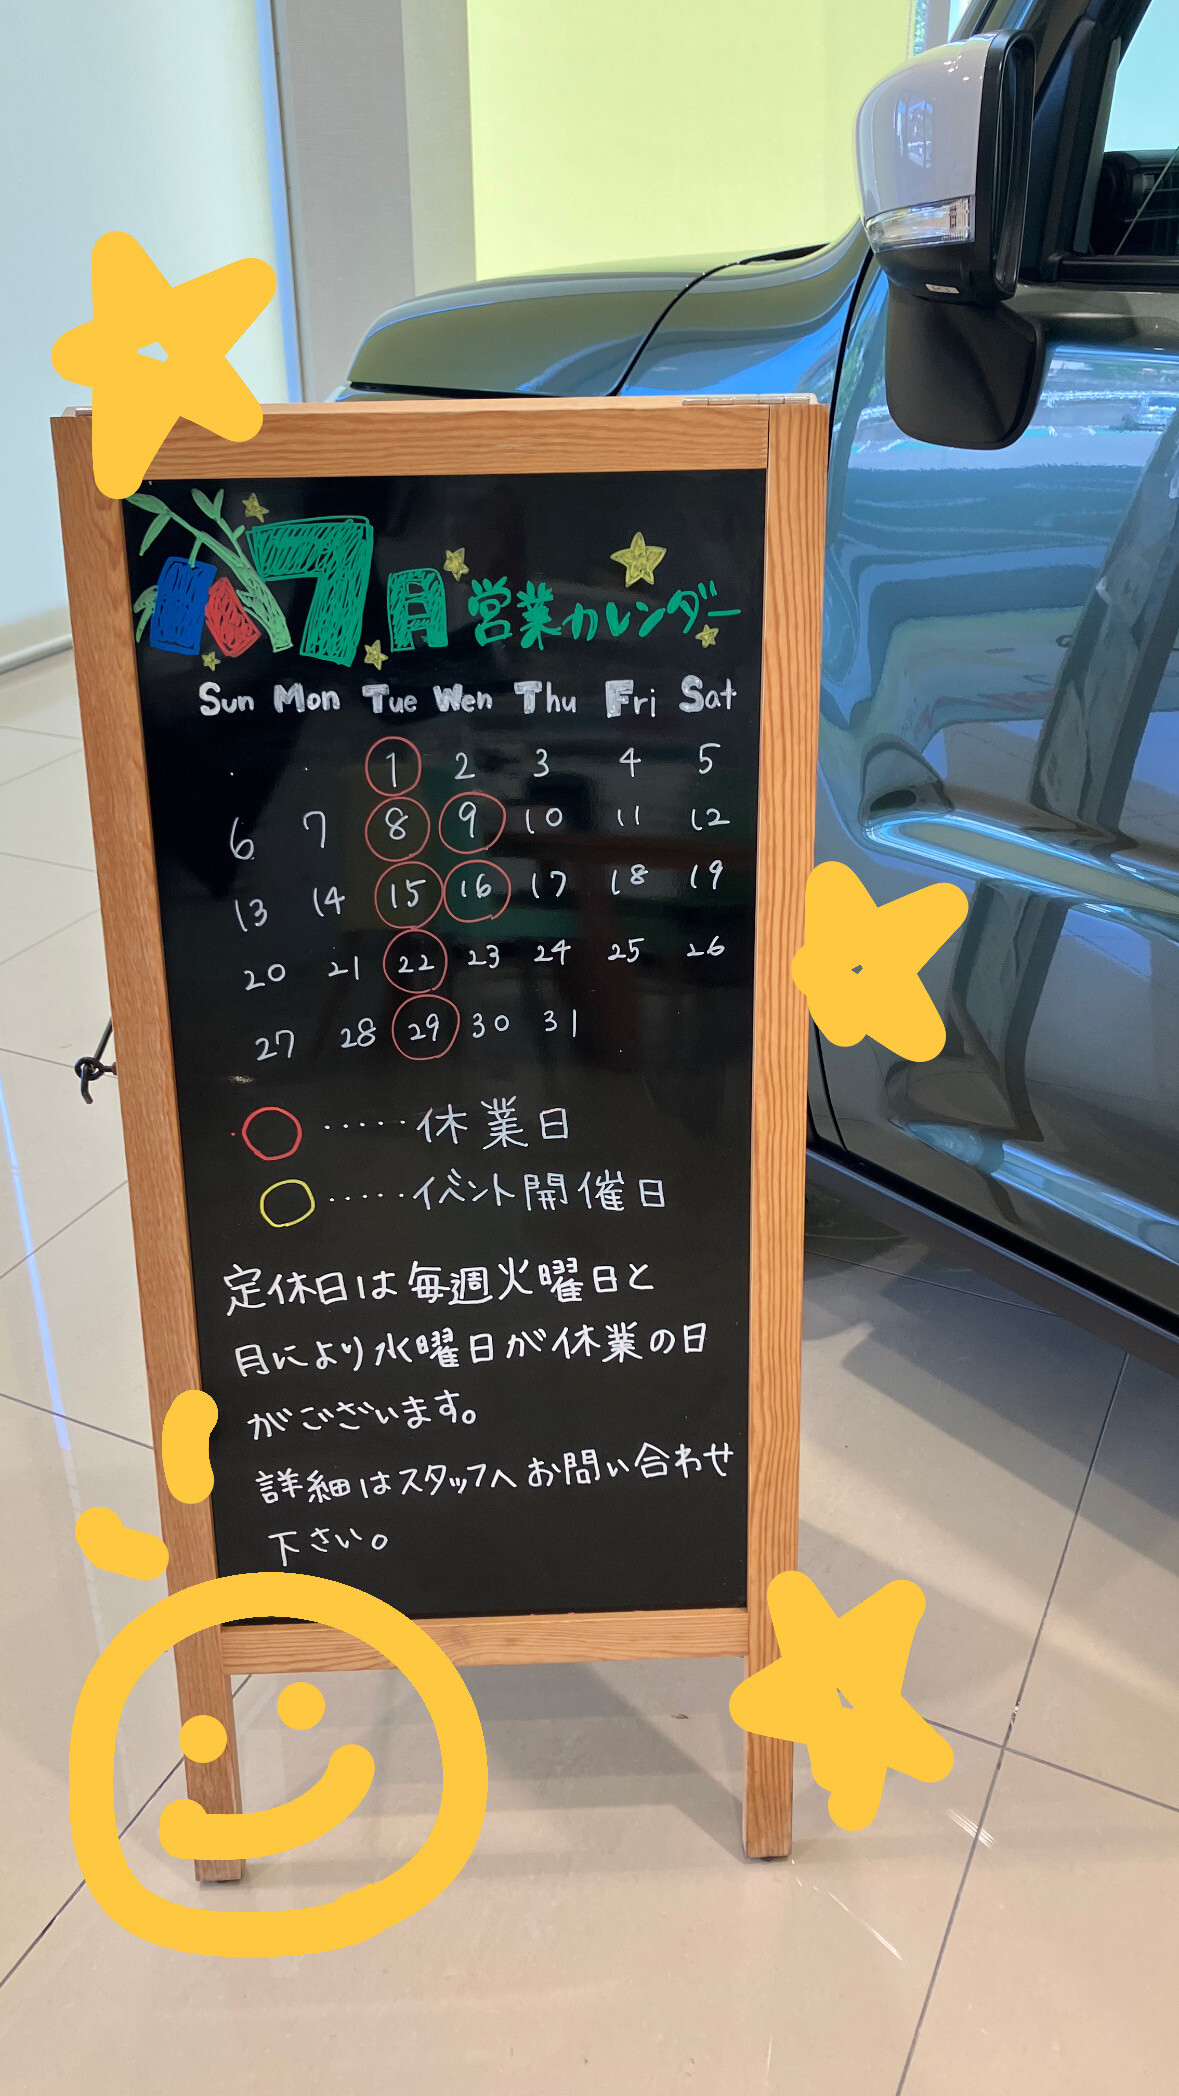 7月営業カレンダー
Sun Mon Tue Wen Thu Fri Sat
1 2 3 4 5
6 7 8 9 10 11 12
13 14 15 16 17 18 19
20 21 22 23 24 25 26
27 28 29 30 31
‥‥‥休業日
‥‥‥イベント開催日
定休日は毎週火曜日と
月により水曜日が休業の日
がございます。
詳細はスタッフへお問い合わせ
下さい。